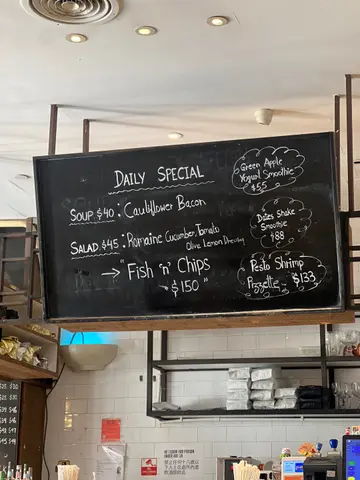 DAILY SPECIAL
SOUP $40: Cauliflower Bacon
SALAD $45: Romaine Cucumber, Tomato
Olive Lemon Dressing
→ "Fish 'n' Chips
$150"
Green Apple
Yogurt Smoothie
$55
Dates Shake
Smoothie
$88
Pesto Shrimp
Pizzette - $133